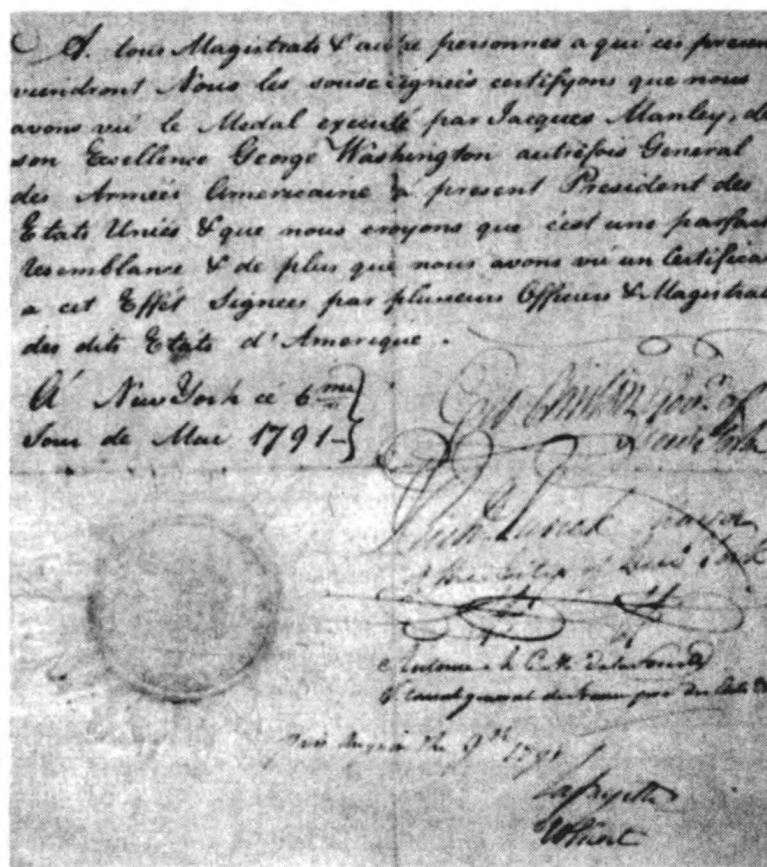 A tous Magistrats & autre personnes a qui ces presen
viendront Nous les sousignés certifyons que nous
avons vû le Medal executé par Jacques Manley, de
son Excellence George Washington autrefois General
des Armées Americaine a present President des
Etats Uniés & que nous croyons que c'est une parfait
resemblance & de plus que nous avons vû un Certifica
a cet Effét Signees par plusieurs Officers & Magistrat
des dits Etats d'Amerique.
A New York cé 6me
Jour de Mai 1791
Geo Clinton Govr. of
New York
Richd. Varick Mayor
of the City of New York
Antoine
9th 1791
Lafayette
WShort